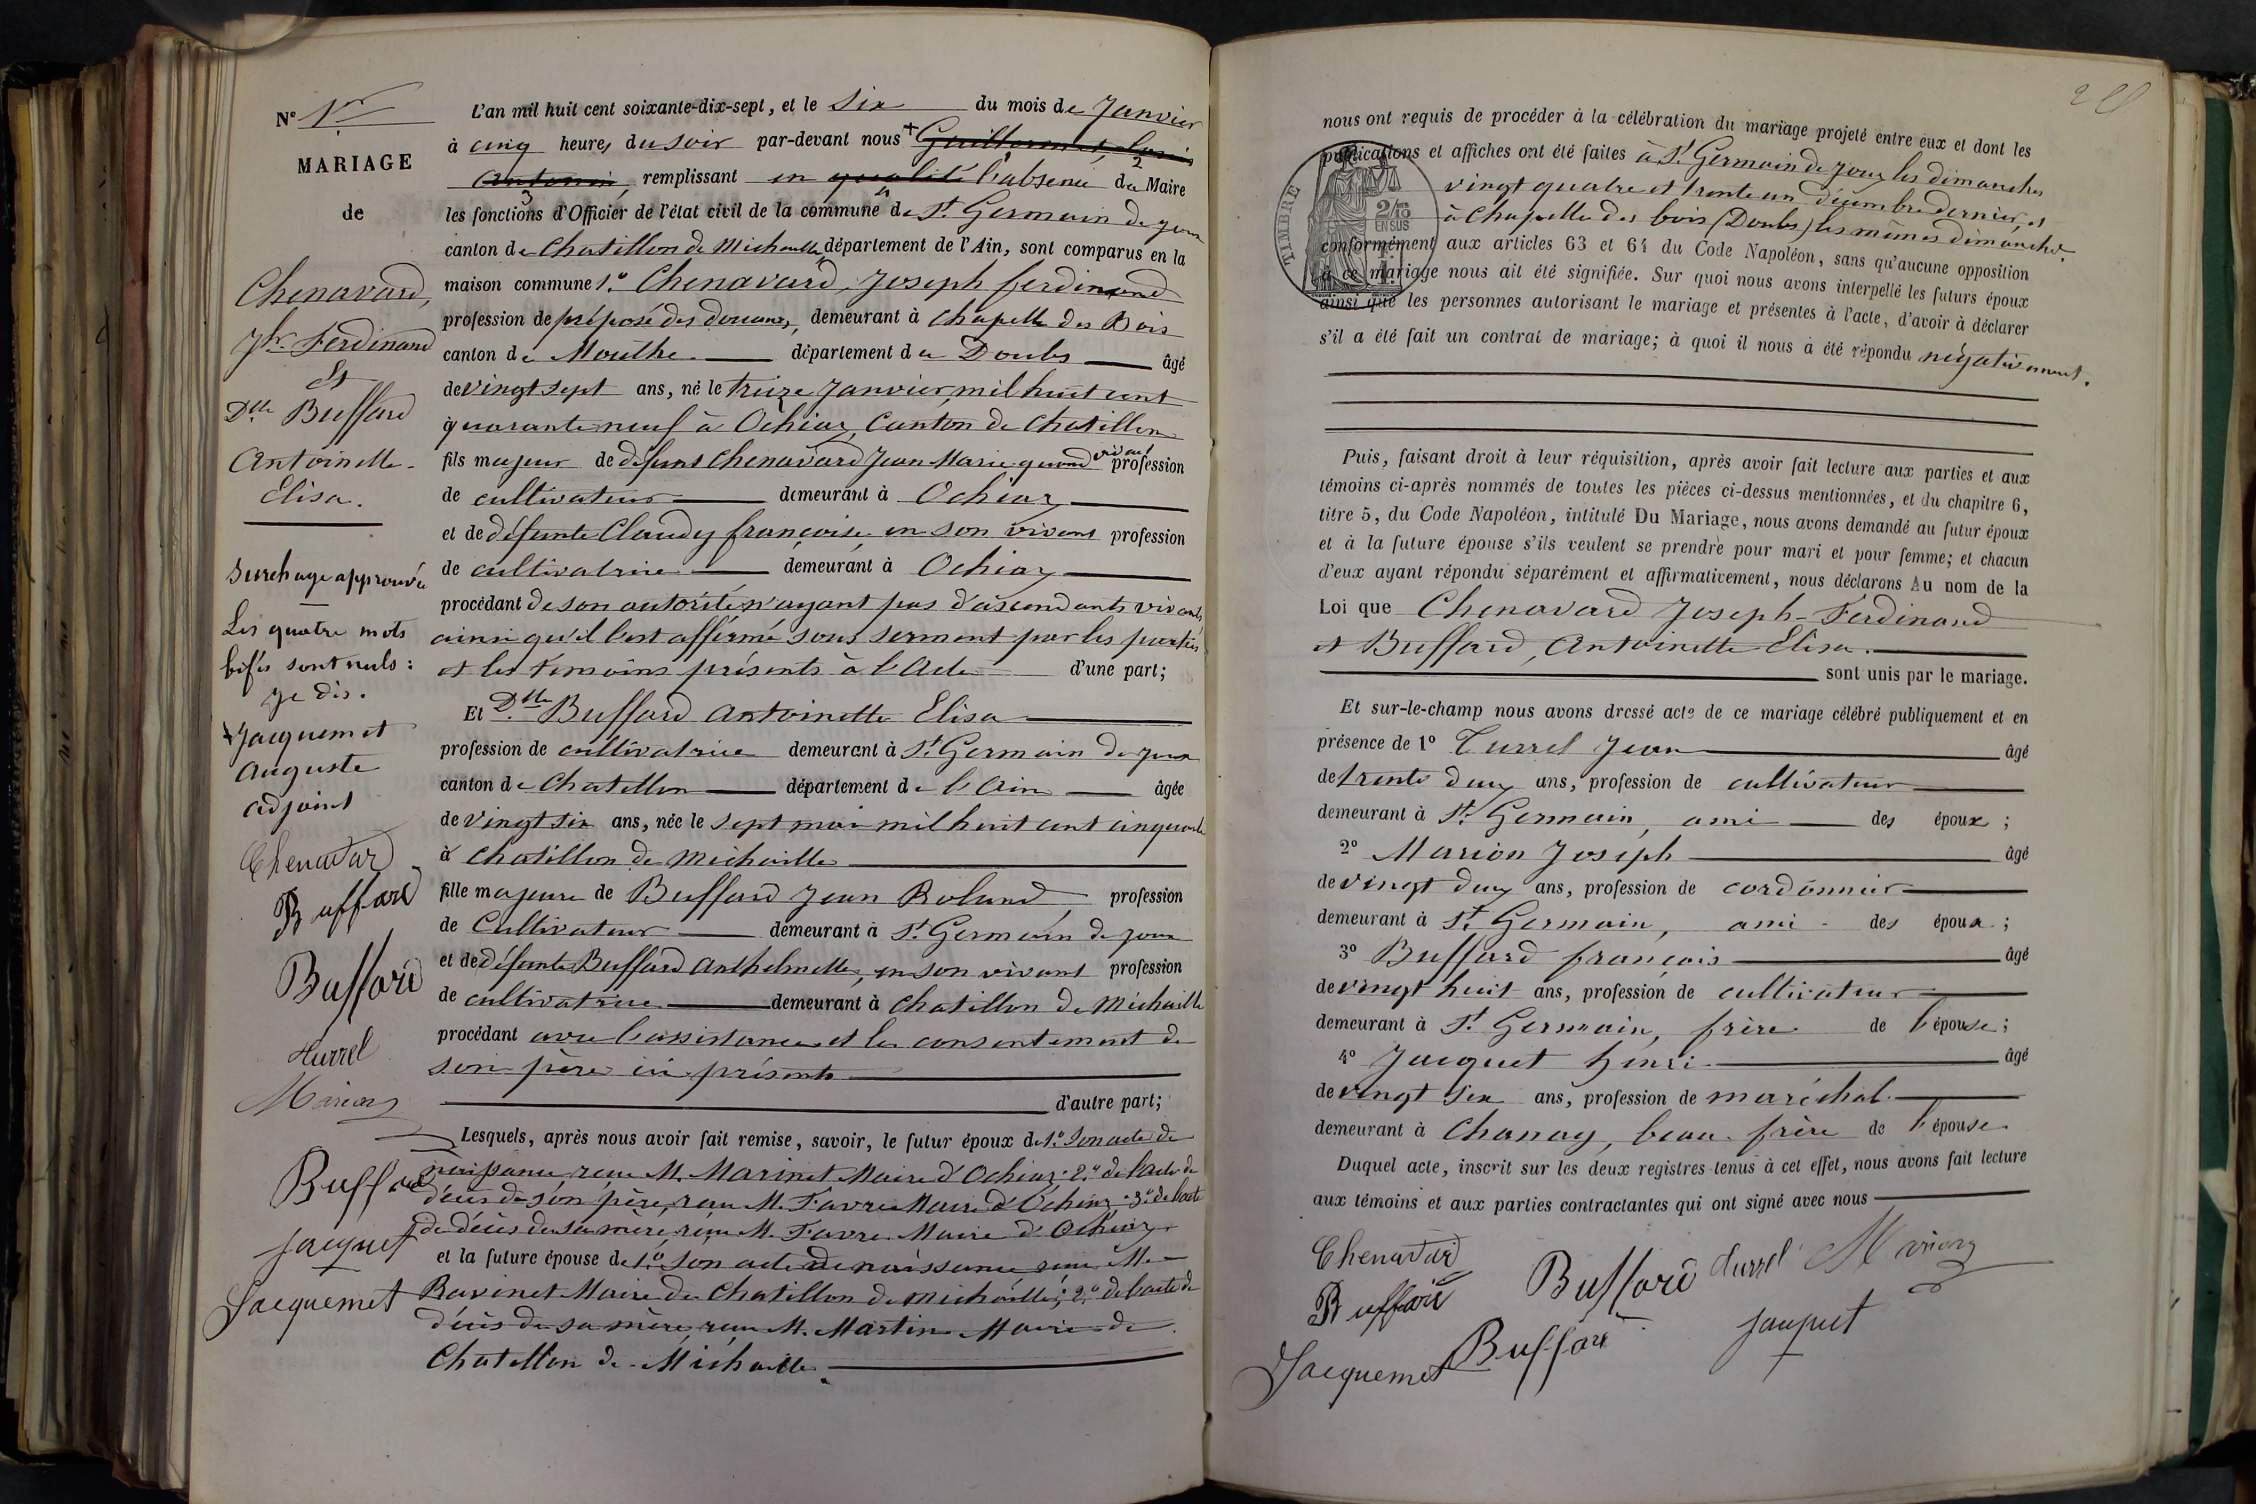 N° 1er
MARIAGE
de
Chenavard,
Jh Ferdinand
Et
Dlle Buffard
Antoinette
Elisa.
Surchage approuvée
Les quatre mots
bifés sont nuls :
Je dis.
+ Jacquemet
Auguste
adjoint
Chenavard
Buffard
Buffard
turrel
Marion
Buffard
Jacquet
Jacquemet
L'an mil huit cent soixante-dix-sept, et le Six du mois de Janvier
à cinq heures du soir par-devant nous + Guillermet, Louis
Antonin, remplissant en qualité l'absence du Maire
les fonctions d'Officier de l'état civil de la commune de St. Germain de Joux
canton de Chatillon de Michaille, département de l'Ain, sont comparus en la
maison commune 1° Chenavard, Joseph ferdinand
profession de préposé des douanes, demeurant à Chapelle des Bois
canton de Mouthe département du Doubs âgé
de vingt sept ans, né le treize Janvier mil huit cent
quarante neuf à Ochiaz, Canton de Chatillon
fils majeur de defunt Chenavard Jean Marie quand vivait profession
de cultivateur demeurant à Ochiaz
et de défunte Claudy françoise en son vivant profession
de cultivatrice demeurant à Ochiaz
procédant de son autorité n'ayant pas d'ascendants vivants
ainsi qu'il l'est affirmé sous serment par les parties
et les témoins présents à l'Acte d'une part;
Et Dlle Buffard Antoinette Elisa
profession de cultivatrice demeurant à St. Germain de Joux
canton de Chatillon département de l'Ain âgée
de vingt six ans, née le sept mai mil huit cent cinquante
à Chatillon de Michaille
fille majeure de Buffard Jean Roland, profession
de Cultivateur demeurant à St. Germain de Joux
et de défunte Buffard Anthelmette, en son vivant profession
de cultivatrice demeurant à Chatillon de Michaille
procédant avec l'assistance et le consentement de
son père ici présent
d'autre part;
Lesquels, après nous avoir fait remise, savoir, le futur époux de 1° Son acte de
naissance, reçu M. Marinet Maire d'Ochiaz. 2° de l'acte de
décès de son père, reçu M. Favre Maire d'Ochiaz. 3° de l'acte
de décès de sa mère, reçu M. Favre Maire d'Ochiaz
et la future épouse de 1° Son acte de naissance reçu M.
Ravinet Maire de Chatillon de Michaille; 2° de l'acte de
décès de sa mère, reçu M. Martin Maire de
Chatillon de Michaille.
nous ont requis de procéder à la célébration du mariage projeté entre eux et dont les
publications et affiches ont été faites à St. Germain de Joux les dimanches
vingt quatre et trente un décembre dernier, et
à Chapelle des bois (Doubs) les mêmes dimanches.
conformément aux articles 63 et 64 du Code Napoléon, sans qu'aucune opposition
à ce mariage nous ait été signifiée. Sur quoi nous avons interpellé les futurs époux
ainsi que les personnes autorisant le mariage et présentes à l'acte, d'avoir à déclarer
s'il a été fait un contrat de mariage; à quoi il nous a été répondu négativement.
TIMBRE
2/10
EN SUS
Puis, faisant droit à leur réquisition, après avoir fait lecture aux parties et aux
témoins ci-après nommés de toutes les pièces ci-dessus mentionnées, et du chapitre 6,
titre 5, du Code Napoléon, intitulé Du Mariage, nous avons demandé au futur époux
et à la future épouse s'ils veulent se prendre pour mari et pour femme; et chacun
d'eux ayant répondu séparément et affirmativement, nous déclarons Au nom de la
Loi que Chenavard Joseph-Ferdinand
et Buffard, Antoinette Elisa.
sont unis par le mariage.
Et sur-le-champ nous avons dressé acte de ce mariage célébré publiquement et en
présence de 1° Turrel Jean âgé
de trente deux ans, profession de cultivateur
demeurant à St. Germain, ami des époux ;
2° Marion Joseph âgé
de vingt deux ans, profession de cordonnier
demeurant à St. Germain, ami des époux ;
3° Buffard françois âgé
de vingt huit ans, profession de cultivateur
demeurant à St. Germain, frère de l'épouse ;
4° Jacquet henri âgé
de vingt six ans, profession de maréchal
demeurant à Chanay, beau-frère de l'épouse
Duquel acte, inscrit sur les deux registres tenus à cet effet, nous avons fait lecture
aux témoins et aux parties contractantes qui ont signé avec nous
Chenavard
Buffard turrel Marion
Buffard
Jacquet
Buffard
Jacquemet